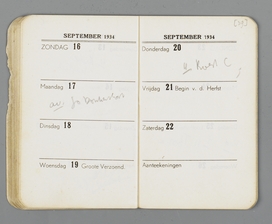 SEPTEMBER 1934
ZONDAG 16
Maandag 17
Dinsdag 18
Woensdag 19 Groote Verzoend.
SEPTEMBER 1934
Donderdag 20
Vrijdag 21 Begin v. d. Herfst
Zaterdag 22
Aanteekeningen